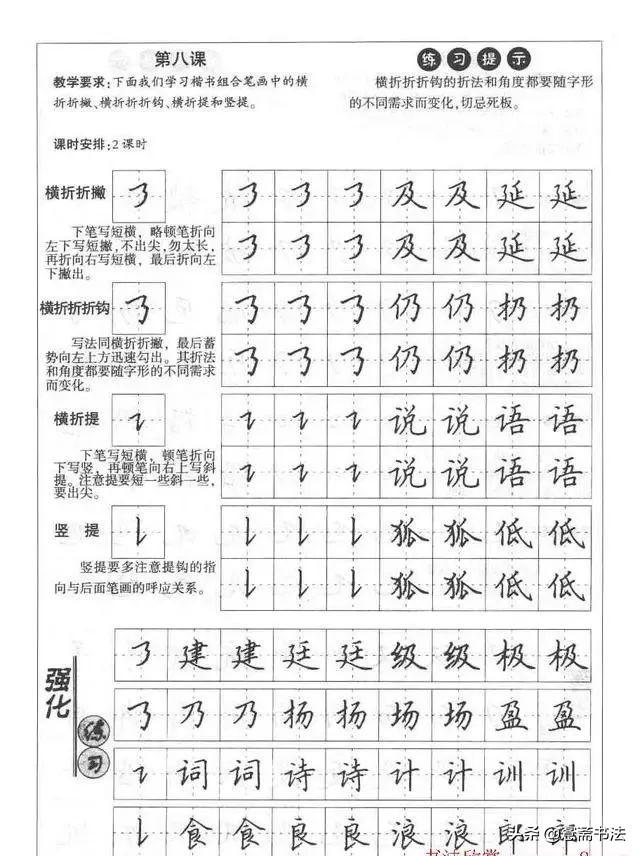 第八课
教学要求:下面我们学习楷书组合笔画中的横
折折撇、横折折折钩、横折提和竖提。
课时安排:2课时
练习提示
横折折折钩的折法和角度都要随字形
的不同需求而变化,切忌死板。
横折折撇
下笔写短横，略顿笔折向
左下写短撇,不出尖,勿太长,
再折向右写短横，最后折向左
下撇出。
㇋ ㇋ ㇋ ㇋ 及 及 延 延
㇋ ㇋ ㇋ 及 及 延 延
横折折折钩
写法同横折折撇，最后蓄
势向左上方迅速勾出。其折法
和角度都要随字形的不同需求
而变化。
㇡ ㇡ ㇡ ㇡ 仍 仍 扔 扔
㇡ ㇡ ㇡ 仍 仍 扔 扔
横折提
下笔写短横，顿笔折向
下写竖，再顿笔向右上写斜
提。注意提要短一些斜一些，
要出尖。
㇊ ㇊ ㇊ ㇊ 说 说 语 语
㇊ ㇊ ㇊ 说 说 语 语
竖 提
竖提要多注意提钩的指
向与后面笔画的呼应关系。
㇙ ㇙ ㇙ ㇙ 狐 狐 低 低
㇙ ㇙ ㇙ 狐 狐 低 低
强化
练习
㇋ 建 建 廷 廷 级 级 极 极
㇡ 乃 乃 扬 扬 场 场 盈 盈
㇊ 词 词 诗 诗 计 计 训 训
㇙ 食 食 良 良 浪 浪 郎 郎